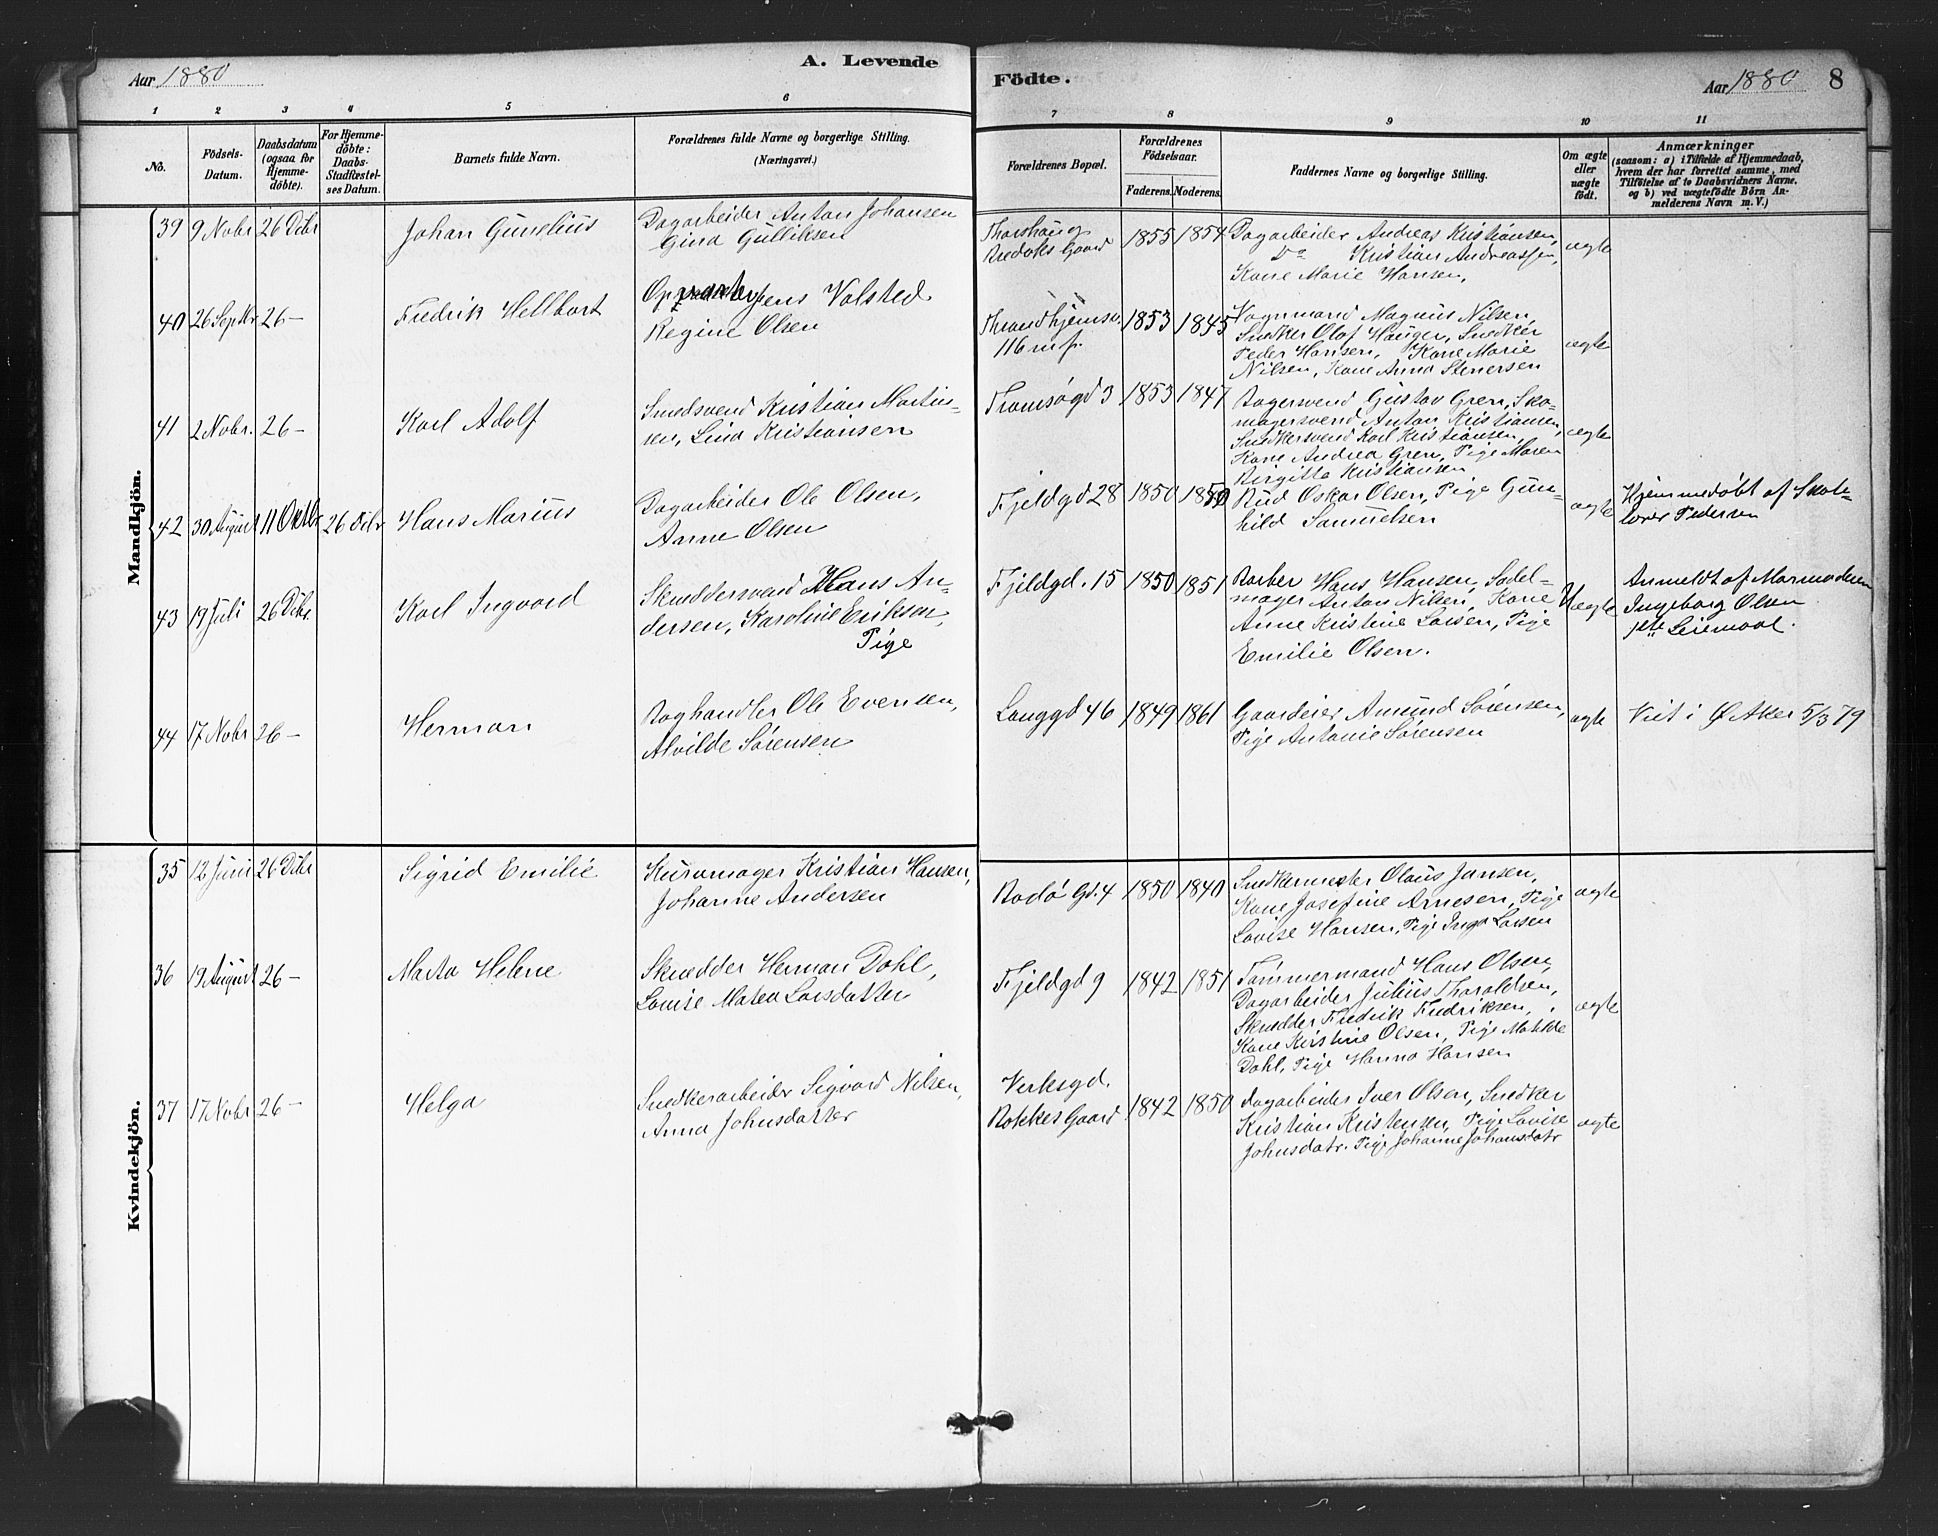 Aar 1880
A. Levende
Födte.
Aar 1880 8
1 2 3 4 5 6 7 8 9 10 11
No.
Födsels-
Datum.
Daabsdatum
(ogsaa for
Hjemme-
döbte).
For Hjemme-
döbte:
Daabs-
Stadfæstel-
ses Datum.
Barnets fulde Navn.
Forældrenes fulde Navne og borgerlige Stilling.
(Næringsvei.)
Forældrenes Bopæl.
Forældrenes
Födselsaar.
Faderens. Moderens.
Faddernes Navne og borgerlige Stilling.
Om ægte
eller
uægte
födt.
Anmærkninger
(saasom: a) i Tilfælde af Hjemmedaab,
hvem der har forrettet samme, med
Tilföielse af to Daabsvidners Navne,
og b) ved uægtefödte Börn An-
melderens Navn m. V.)
Mandkjön.
39 9 Nobr 26 Dcbr
Johan Gunelius
Dagarbeider Anton Johansen
Gina Gulliksen
Thorshaug
Bredoks Gaard
1855 1854
Dagarbeider Andreas Kristiansen,
Do Kristian Andreassen,
Kone Marie Hansen,
ægte
40 26 Septbr 26 –
Fredrik Hellbart
Jens Valsted
Regine Olsen
Throndhjemsv.
116 m.f.
1853 1845
Vognmand Magnus Nilsen,
Snedker Olaf Hauger, Snedker
Peder Hansen, Kone Marie
Nilsen, Kone Anna Stenersen
ægte
41 2 Nobr. 26 –
Karl Adolf
Smedsvend Kristian Martin-
sen, Lina Kristiansen
Tromsøgd 3
1853 1847
Bagersvend Gustav Gren, Sko-
magersvend Anton Kristiansen,
Snedkersvend Karl Kristiansen,
Kone Andrea Gren, Pige Maren
Birgitta Kristiansen
ægte
42 30 August 11 Oktbr 26 Dcbr
Hans Marius
Dagarbeider Ole Olsen,
Anne Olsen
Fjeldgd 28
1850
Bud Oskar Olsen, Pige Gun-
hild Samuelsen
ægte
Hjemmedøbt af Skole-
lærer Pedersen
43 19 Juli 26 Dcbr.
Karl Ingvard
Skræddersvend Hans An-
dersen, Karoline Eriksen,
Pige
Fjeldgd. 15
1850 1851
Barber Hans Hansen, Sadel-
mager Anton Nilsen, Kone
Anne Kristine Larsen, Pige
Emilie Olsen.
Uægte
Anmeldt af Mormoderen
Ingeborg Olsen
1ste Leiermaal.
44 17 Nobr 26 –
Herman
Baghandler Ole Evensen,
Alvilde Sørensen
Langgd 46
1849 1861
Gaardeier Amund Sørensen,
Pige Antonie Sørensen
ægte
Viet i Ø Aker 5/3 79
Kvindekjön.
35 12 Juni 26 Dcbr
Sigrid Emilie
Kurvmager Kristian Hansen,
Johanne Andersen
Bodø Gd. 4
1850 1840
Snedkermester Olaus Jansen,
Kone Josefine Arnesen, Pige
Lovise Hansen, Pige Inga Larsen
ægte
36 19 August 26 –
Marta Helene
Skrædder Herman Dahl,
Lovise Matea Larsdatter
Fjeldgd 9
1842 1851
Tømmermand Hans Olsen,
Dagarbeider Julius Tharaldsen,
Skrædder Fredrik Fredriksen,
Kone Kristine Olsen, Pige Matilde
Dahl, Pige Hanna Hansen
ægte
37 17 Nobr 26 –
Helga
Snedkerarbeider Sigvard Nilsen,
Anna Johnsdatter
Verksgd.
Bokkes Gaard
1842 1850
Dagarbeider Iver Olsen, Snedker
Kristian Kristensen, Pige Lovise
Johnsdatr. Pige Johanne Johansdatr
ægte